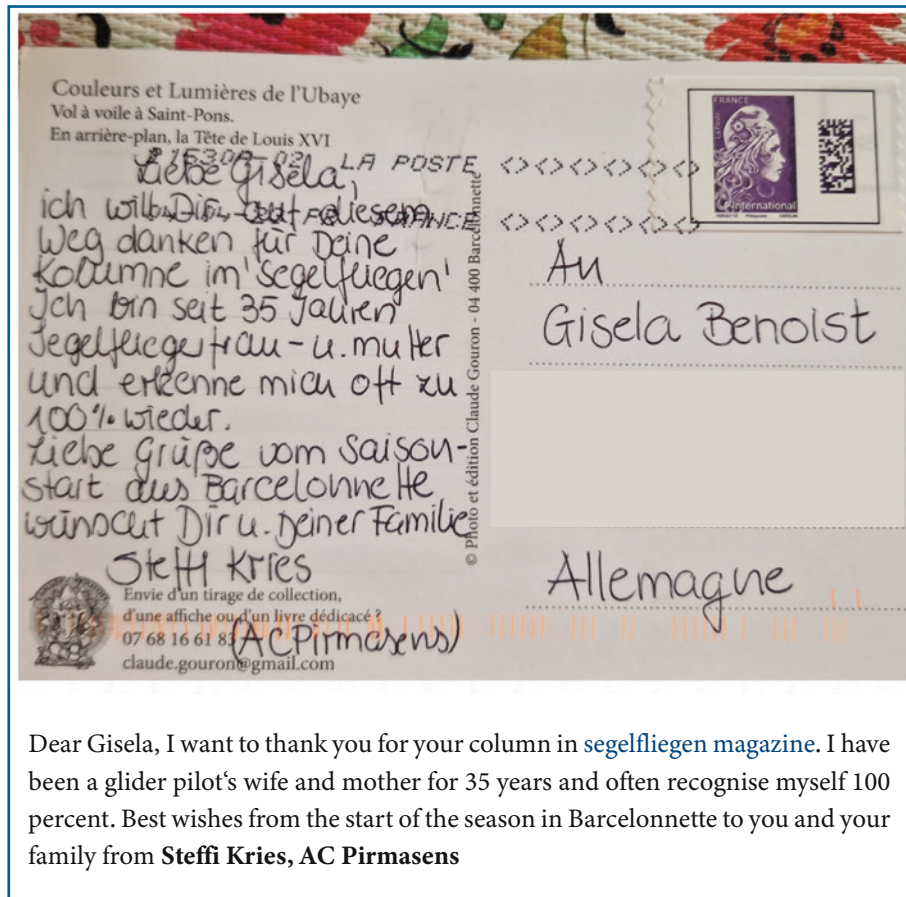 Couleurs et Lumières de l'Ubaye
Vol à voile à Saint-Pons.
En arrière-plan, la Tête de Louis XVI
LA POSTE
FRANCE
FRANCE
International
Liebe Gisela,
ich will Dir auf diesem
Weg danken für Deine
Kolumne im 'Segelfliegen'
Ich bin seit 35 Jahren
Segelfliegerfrau - u. mutter
und erkenne mich oft zu
100% wieder.
Liebe Grüße vom Saison-
start aus Barcelonnette
wünscht Dir u. Deiner Familie
Steffi Kries
(AC Pirmasens)
Envie d'un tirage de collection,
d'une affiche ou d'un livre dédicacé ?
07 68 16 61 83
claude.gouron@gmail.com
© Photo et édition Claude Gouron - 04 400 Barcelonnette
An
Gisela Benoist
Allemagne
Dear Gisela, I want to thank you for your column in segelfliegen magazine. I have
been a glider pilot‘s wife and mother for 35 years and often recognise myself 100
percent. Best wishes from the start of the season in Barcelonnette to you and your
family from Steffi Kries, AC Pirmasens